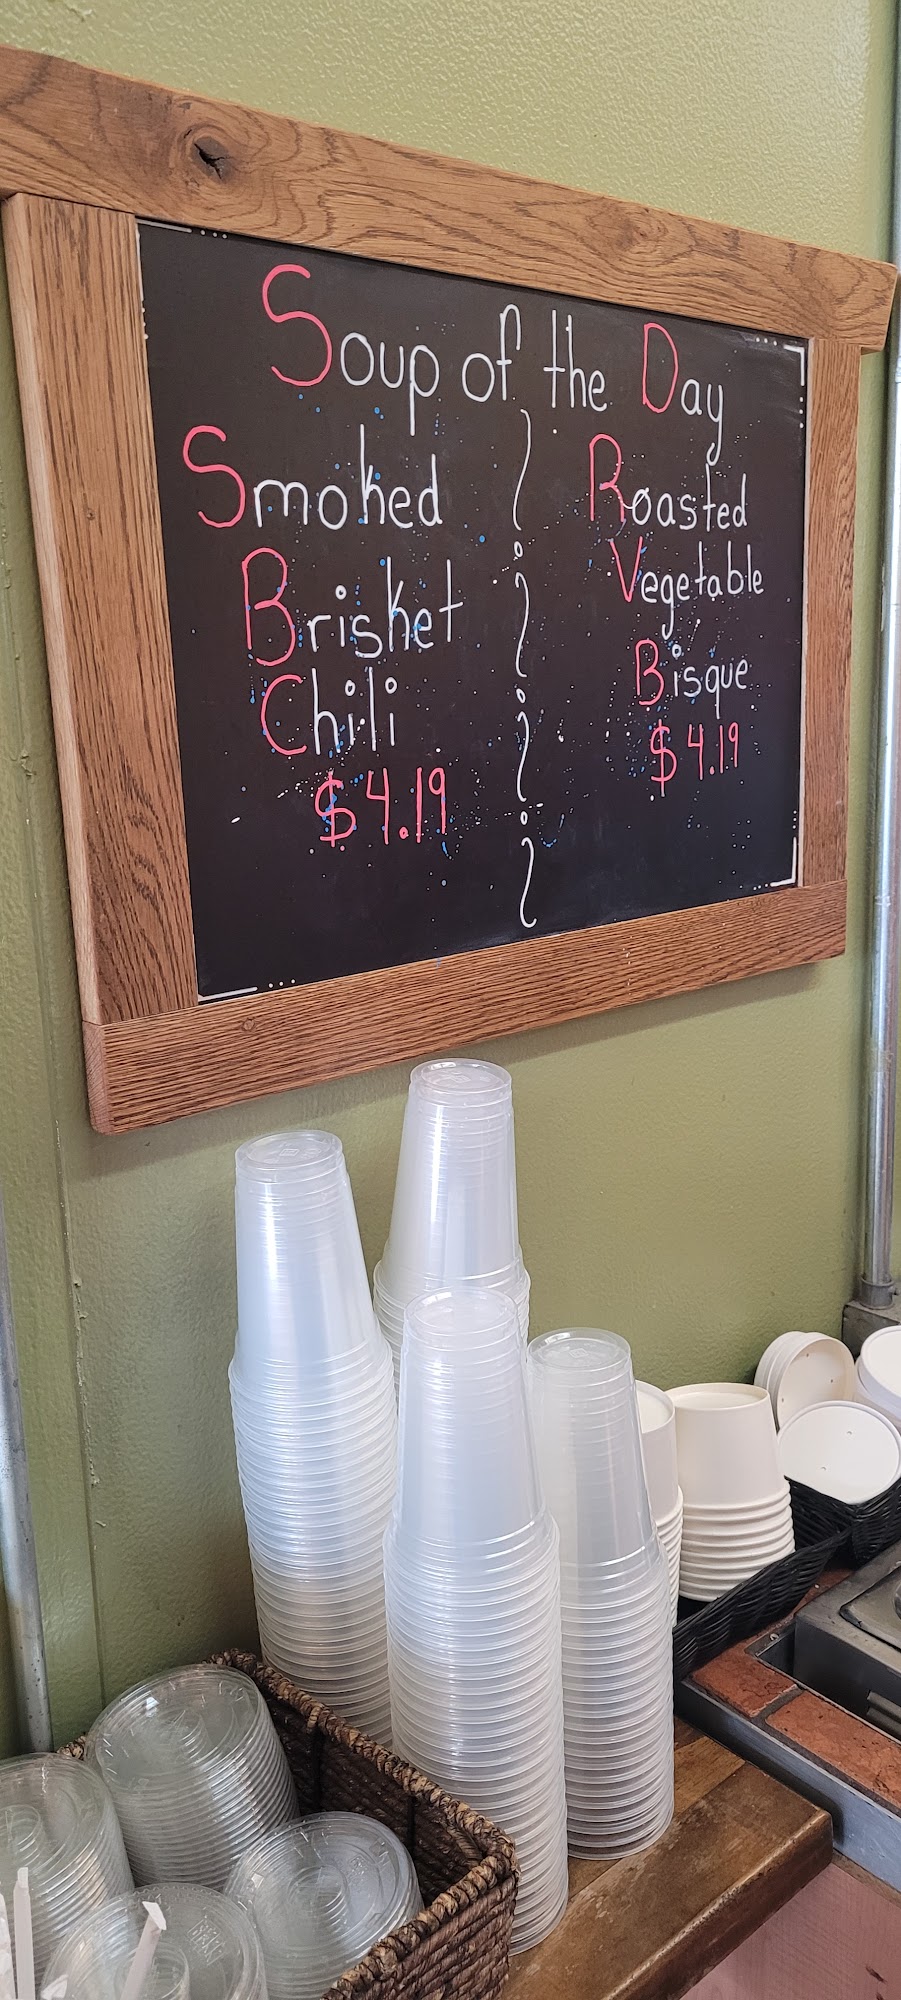 Soup of the Day
Smoked
Brisket
Chili
$4.19
Roasted
Vegetable
Bisque
$4.19